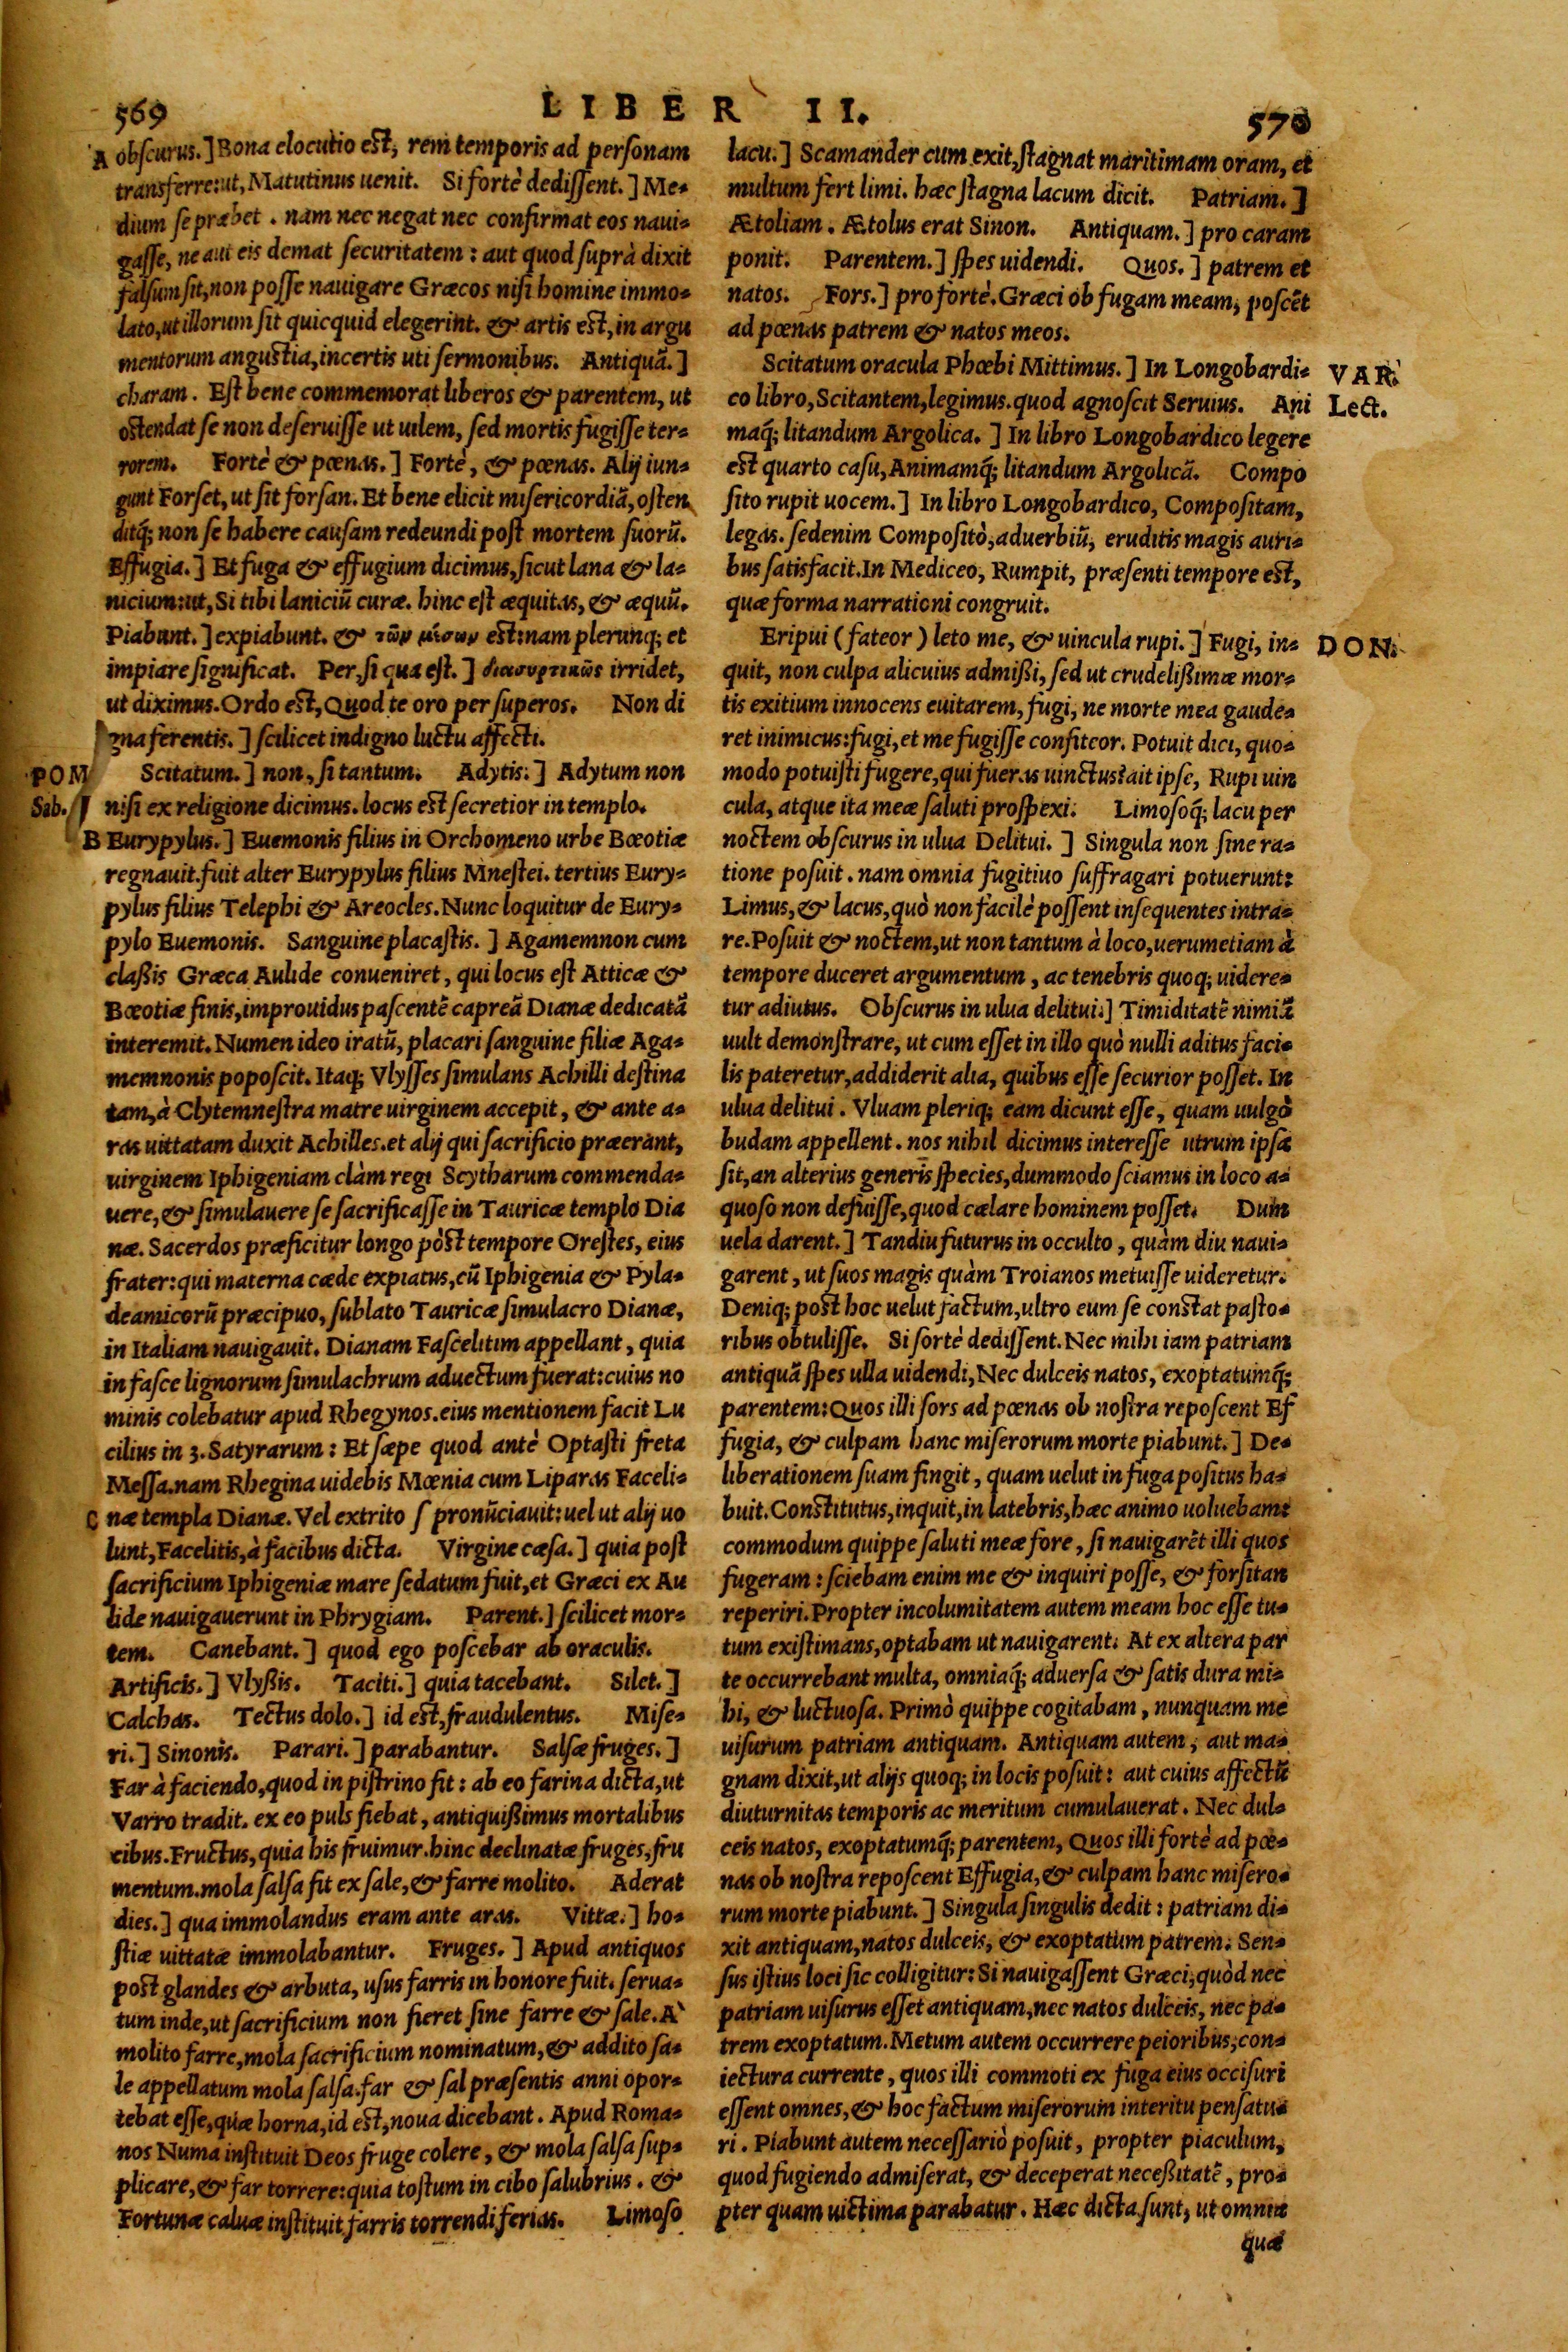 569
LIBER II.
570
A obscurus.] Bona elocutio est, rem temporis ad personam
transferre: ut, Matutinus uenit. Si fortè dedissent.] Me-
dium se præbet. nam nec negat nec confirmat eos naui-
gasse, ne aut eis demat securitatem: aut quod suprà dixit
falsum sit, non posse nauigare Græcos nisi homine immo-
lato, ut illorum sit quicquid elegerint. & artis est, in argu
mentorum angustia, incertis uti sermonibus. Antiquā.]
charam. Est bene commemorat liberos & parentem, ut
ostendat se non deseruisse ut uilem, sed mortis fugisse ter-
rorem. Fortè & pœnas.] Fortè, & pœnas. Alij iun-
gunt Forset, ut sit forsan. Et bene elicit misericordiā, osten
ditq; non se habere causam redeundi post mortem suorū.
Effugia.] Et fuga & effugium dicimus, sicut lana & la-
nicium: ut, Si tibi laniciū curæ. hinc est æquitas, & æquū.
Piabunt.] expiabunt. & τῶν μέσων est: nam plerunq; et
impiare significat. Per, si qua est.] διασυρτικῶς irridet,
ut diximus. Ordo est, Quod te oro per superos. Non di
gna ferentis.] scilicet indigno luctu affecti.
POM Scitatum.] non, si tantum. Adytis.] Adytum non
Sab. nisi ex religione dicimus. locus est secretior in templo.
B Eurypylus.] Euemonis filius in Orchomeno urbe Bœotiæ
regnauit. fuit alter Eurypylus filius Mnestei. tertius Eury-
pylus filius Telephi & Areocles. Nunc loquitur de Eury-
pylo Euemonis. Sanguine placastis.] Agamemnon cum
classis Græca Aulide conueniret, qui locus est Atticæ &
Bœotiæ finis, improuidus pascentē capreā Dianæ dedicatā
interemit. Numen ideo iratū, placari sanguine filiæ Aga-
memnonis poposcit. Itaq; Vlysses simulans Achilli destina
tam, à Clytemnestra matre uirginem accepit, & ante a-
ras uittatam duxit Achilles. et alij qui sacrificio præerant,
uirginem Iphigeniam clàm regi Scytharum commenda-
uere, & simulauere se sacrificasse in Tauricæ templo Dia
næ. Sacerdos præficitur longo pòst tempore Orestes, eius
frater: qui materna cæde expiatus, cū Iphigenia & Pyla-
de amicorū præcipuo, sublato Tauricæ simulacro Dianæ,
in Italiam nauigauit. Dianam Fascelitim appellant, quia
in fasce lignorum simulachrum aduectum fuerat: cuius no
minis colebatur apud Rhegynos. eius mentionem facit Lu
cilius in 3. Satyrarum: Et sæpe quod antè Optasti freta
Messa. nam Rhegina uidebis Mœnia cum Liparas Faceli-
C næ templa Dianæ. Vel extrito s pronūciauit: uel ut alij uo
lunt, Facelitis, à facibus dicta. Virgine cæsa.] quia post
sacrificium Iphigeniæ mare sedatum fuit, et Græci ex Au
lide nauigauerunt in Phrygiam. Parent.] scilicet mor-
tem. Canebant.] quod ego poscebar ab oraculis.
Artificis.] Vlyßis. Taciti.] quia tacebant. Silet.]
Calchas. Tectus dolo.] id est, fraudulentus. Mise-
ri.] Sinonis. Parari.] parabantur. Salsæ fruges.]
Far à faciendo, quod in pistrino fit: ab eo farina dicta, ut
Varro tradit. ex eo puls fiebat, antiquißimus mortalibus
cibus. Fructus, quia his fruimur. hinc declinatæ fruges, fru
mentum. mola salsa fit ex sale, & farre molito. Aderat
dies.] qua immolandus eram ante aras. Vittæ.] ho-
stiæ uittatæ immolabantur. Fruges.] Apud antiquos
post glandes & arbuta, usus farris in honore fuit. serua-
tum inde, ut sacrificium non fieret sine farre & sale. A`
molito farre, mola sacrificium nominatum, & addito sa-
le appellatum mola salsa. far & sal præsentis anni opor-
tebat esse, quæ horna, id est, noua dicebant. Apud Roma-
nos Numa instituit Deos fruge colere, & mola salsa sup-
plicare, & far torrere: quia tostum in cibo salubrius. &
Fortunæ caluæ instituit farris torrendi ferias. Limoso
lacu.] Scamander cum exit, stagnat maritimam oram, et
multum fert limi. hæc stagna lacum dicit. Patriam.]
Ætoliam. Ætolus erat Sinon. Antiquam.] pro caram
ponit. Parentem.] spes uidendi. Quos.] patrem et
natos. Fors.] pro fortè. Græci ob fugam meam, poscēt
ad pœnas patrem & natos meos.
Scitatum oracula Phœbi Mittimus.] In Longobardi- VAR.
co libro, Scitantem, legimus. quod agnoscit Seruius. Ani Lect.
maq; litandum Argolica.] In libro Longobardico legere
est quarto casu, Animamq; litandum Argolicā. Compo
sito rupit uocem.] In libro Longobardico, Compositam,
legas. sed enim Compositò, aduerbiū, eruditis magis auri-
bus satisfacit. In Mediceo, Rumpit, præsenti tempore est,
quæ forma narrationi congruit.
Eripui (fateor) leto me, & uincula rupi.] Fugi, in- DON.
quit, non culpa alicuius admißi, sed ut crudelißimæ mor-
tis exitium innocens euitarem, fugi, ne morte mea gaude-
ret inimicus: fugi, et me fugisse confiteor. Potuit dici, quo-
modo potuisti fugere, qui fueras uinctus? ait ipse, Rupi uin
cula, atque ita meæ saluti prospexi. Limosoq; lacu per
noctem obscurus in ulua Delitui.] Singula non sine ra-
tione posuit. nam omnia fugitiuo suffragari potuerunt:
Limus, & lacus, quò non facilè possent insequentes intra-
re. Posuit & noctem, ut non tantum à loco, uerumetiam à
tempore duceret argumentum, ac tenebris quoq; uidere-
tur adiutus. Obscurus in ulua delitui.] Timiditatē nimiā
uult demonstrare, ut cum esset in illo quò nulli aditus faci-
lis pateretur, addiderit alia, quibus esse securior posset. In
ulua delitui. Vluam pleriq; eam dicunt esse, quam uulgò
budam appellent. nos nihil dicimus interesse utrum ipsa
sit, an alterius generis species, dummodo sciamus in loco a-
quoso non defuisse, quod cælare hominem posset. Dum
uela darent.] Tandiu futurus in occulto, quàm diu naui-
garent, ut suos magis quàm Troianos metuisse uideretur.
Deniq; post hoc uelut factum, ultro eum se constat pasto-
ribus obtulisse. Si fortè dedissent. Nec mihi iam patriam
antiquā spes ulla uidendi, Nec dulceis natos, exoptatumq;
parentem: Quos illi fors ad pœnas ob nostra reposcent Ef
fugia, & culpam hanc miserorum morte piabunt.] De-
liberationem suam fingit, quam uelut in fuga positus ha-
buit. Constitutus, inquit, in latebris, hæc animo uoluebam:
commodum quippe saluti meæ fore, si nauigarēt illi quos
fugeram: sciebam enim me & inquiri posse, & forsitan
reperiri. Propter incolumitatem autem meam hoc esse tu-
tum existimans, optabam ut nauigarent. At ex altera par
te occurrebant multa, omniaq; aduersa & satis dura mi-
hi, & luctuosa. Primò quippe cogitabam, nunquam me
uisurum patriam antiquam. Antiquam autem, aut ma-
gnam dixit, ut alijs quoq; in locis posuit: aut cuius affectū
diuturnitas temporis ac meritum cumulauerat. Nec dul-
ceis natos, exoptatumq; parentem, Quos illi fortè ad pœ-
nas ob nostra reposcent Effugia, & culpam hanc misero-
rum morte piabunt.] Singula singulis dedit: patriam di-
xit antiquam, natos dulceis, & exoptatum patrem. Sen-
sus istius loci sic colligitur: Si nauigassent Græci, quòd nec
patriam uisurus esset antiquam, nec natos dulceis, nec pa-
trem exoptatum. Metum autem occurrere peioribus, con-
iectura currente, quos illi commoti ex fuga eius occisuri
essent omnes, & hoc factum miserorum interitu pensatu-
ri. Piabunt autem necessariò posuit, propter piaculum,
quod fugiendo admiserat, & deceperat neceßitatē, pro-
pter quam uictima parabatur. Hæc dicta sunt, ut omnia
quæ